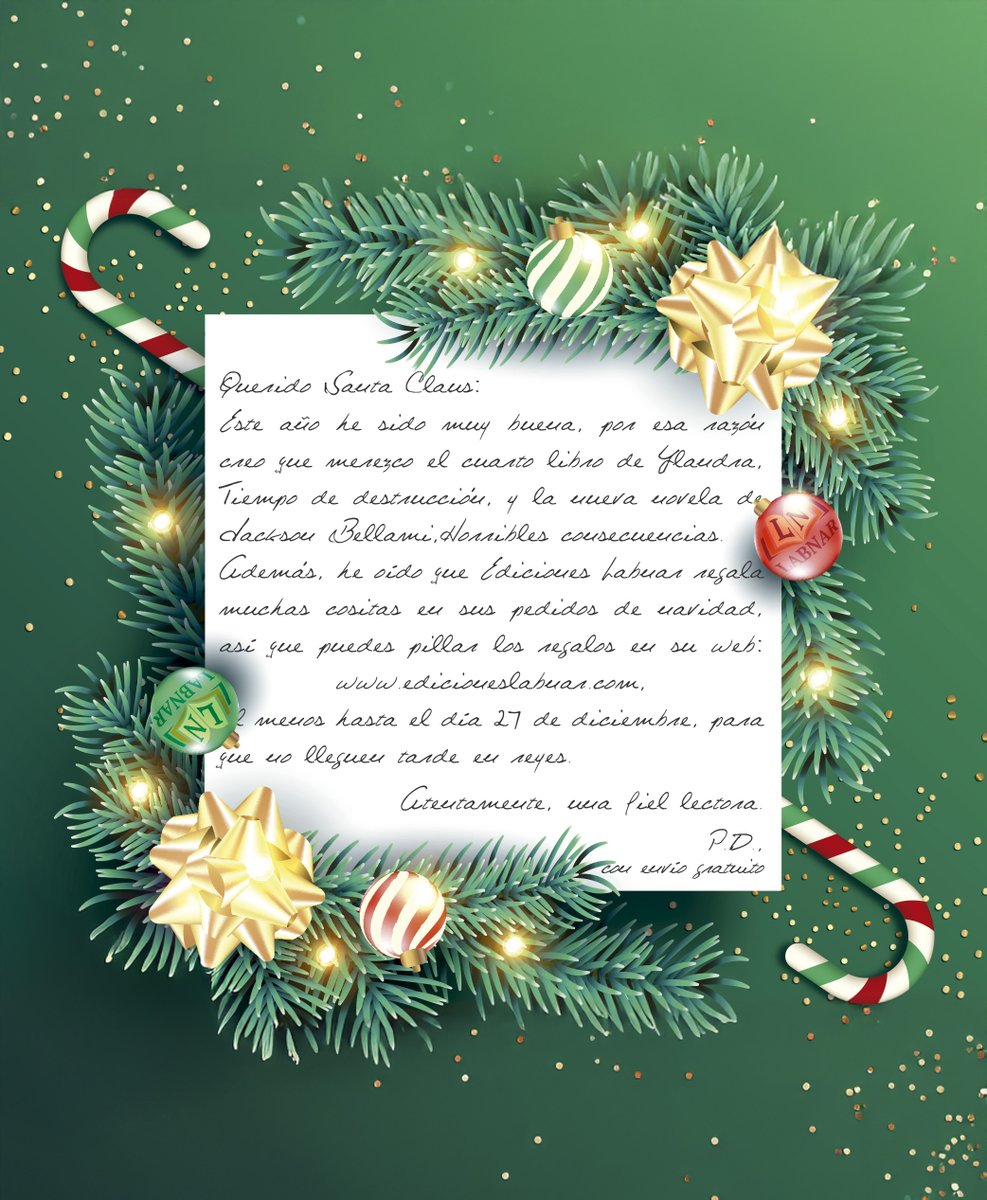 Querido Santa Claus:
Este año he sido muy buena, por esa razón
creo que merezco el cuarto libro de Ylandra,
Tiempo de destrucción, y la nueva novela de
Jackson Bellami, Horribles consecuencias.
Además, he oído que Ediciones Labnar regala
muchas cositas en sus pedidos de navidad,
así que puedes pillar los regalos en su web:
www.edicioneslabnar.com,
al menos hasta el día 27 de diciembre, para
que no lleguen tarde en reyes.
Atentamente, una fiel lectora.
P.D.,
con envío gratuito
LN
LABNAR
LN
LABNAR